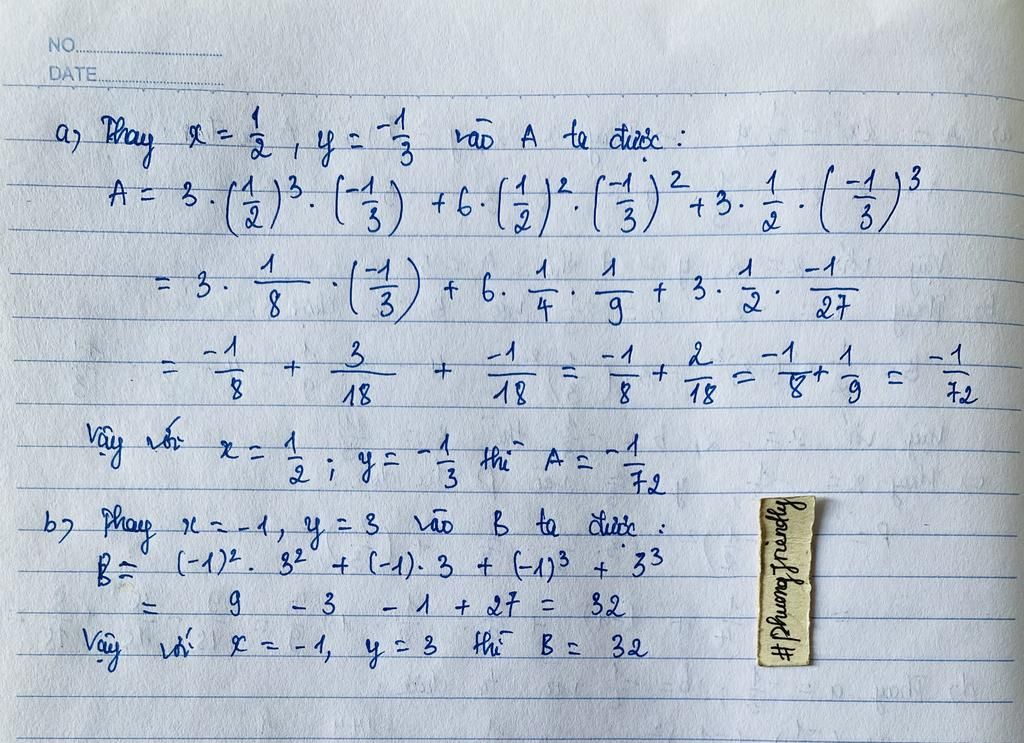 NO
DATE
a) Thay x = 1/2, y = -1/3 vào A ta được:
A = 3 · (1/2)³ · (-1/3) + 6 · (1/2)² · (-1/3)² + 3 · 1/2 · (-1/3)³
= 3 · 1/8 · (-1/3) + 6 · 1/4 · 1/9 + 3 · 1/2 · -1/27
= -1/8 + 3/18 + -1/18 = -1/8 + 2/18 = -1/8 + 1/9 = -1/72
Vậy với x = 1/2; y = -1/3 thì A = -1/72
b) Thay x = -1, y = 3 vào B ta được:
B = (-1)² · 3² + (-1) · 3 + (-1)³ + 3³
= 9 - 3 - 1 + 27 = 32
Vậy với x = -1, y = 3 thì B = 32
#phuongfriendly